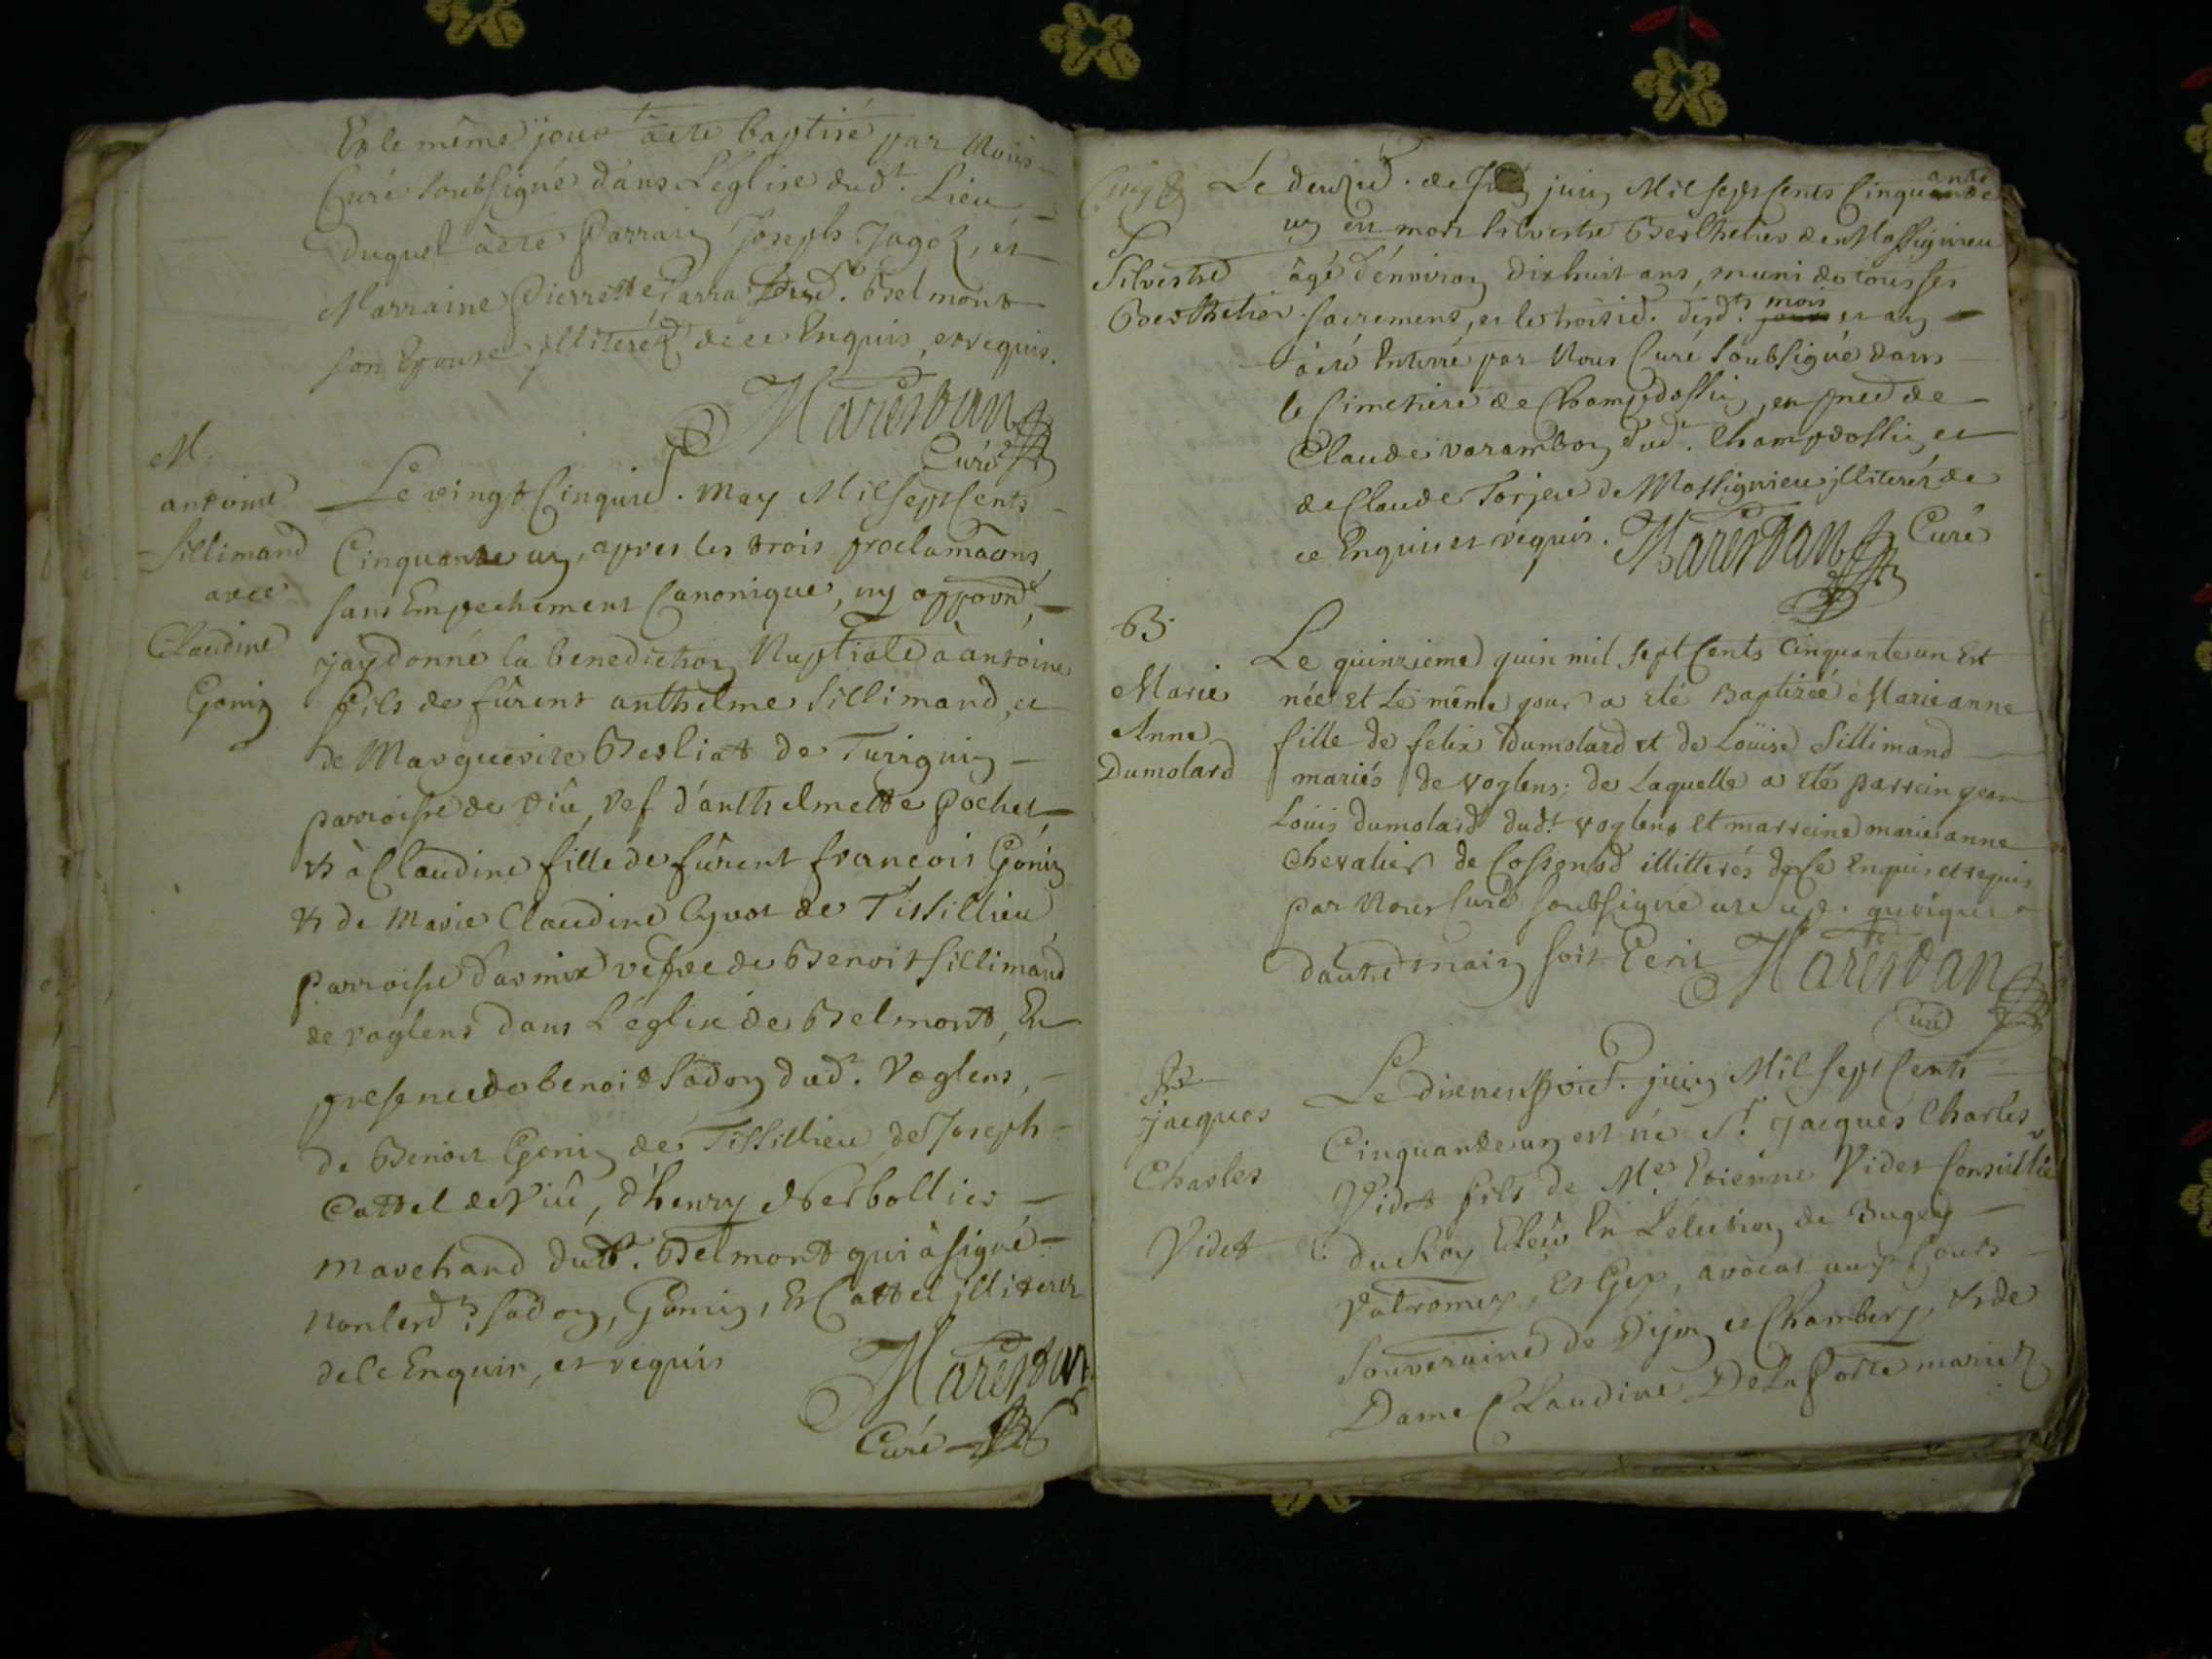 Et le même jour a eté baptisé par Nous
Curé soubsigné dans L'église dud.t Lieu,
duquel à eté Parrain Joseph Jagoz, et
Marraine Pierrette Parra dud.t Belmont
son Epouse illiteréz de ce Enquis, et requis.
Marestan
Curé
M.
antoine
Sillimand
avec
Claudine
Gonin
Le vingt Cinquie. May Mil sept Cents
Cinquante un, apres les trois proclamaons,
sans Empechement Canonique, ny oppoon,
jay donné la benediction Nuptiale à antoine
fils de fûrent anthelme Sillimand, et
de Marguerite Berliat de Turignin
parroisse de Viû, Vef d'anthelmette Pochet
et à Claudine fille de fûrent francois Gonin
et de Marie Claudine Cyvot de Tissillieu,
Parroisse d'armix vefve de Benoit Sillimand
de voglens dans L'église de Belmont, En
presence de benoit Sadon dud.t Voglens,
de Benoit Gonin de Tissillieu, de Joseph
Cattel de Viû, d'henry Nerbollier
Marchand dud.t Belmont qui à signé
non lesd.ts Sadon, Gonin, Et Cattel illiterez
de Ce Enquis, et requis
Marestan
Curé
Silvestre
Berthelier
Le deuzie. de juin Mil sept Cents Cinquante
un est mort silvestre Berthelier de Massignieu
âgé d'environ dixhuit ans, muni de tous ses
sacrement, et le troisie. desd.ts mois et an
à eté Enterré par Nous Curé soubsigné dans
le Cimetiere de Champdossin, en pnce de
Claude varambon dud.t Champdossin, et
de Claude Torjere de Massignieu illiteréz de
ce Enquis et requis. Marestan Curé
B.
Marie
Anne
Dumolard
Le quinzieme juin mil sept Cents Cinquante un Est
née Et Le même jour a eté Baptizée Marie anne
fille de felix Dumolard et de Loüise Sillimand
mariés de voglens; de Laquelle a eté parrein jean
Loüis dumolard dud.t voglens et marreine marie anne
Chevalier de Cossonod illitterés de Ce Enquis et requis
par Nous Curé soubsigné quoique
d'autre main soit Ecrit Marestan
curé
Jacques
Charles
Videt
Le dixneufvie. juin Mil sept Cents
Cinquante un est né S.r Jacques Charles
Videt fils de M.e Etienne Videt Conseillie
du Roy Eleû En L'élection de Bugey
Valromey, et Gex, avocat aux Cours
Souveraine de Dijon et Chambery, et de
Dame Claudine De La Porte mariez